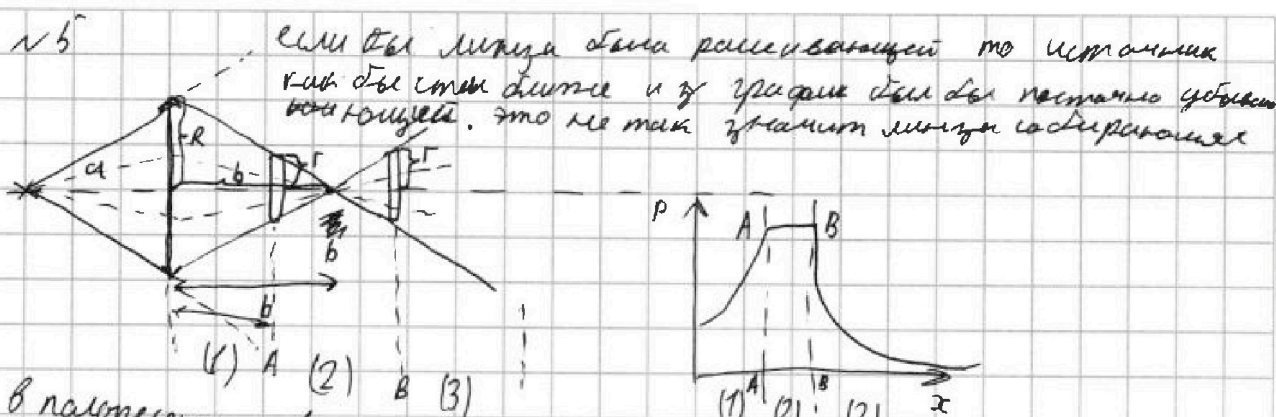 №5 если бы линза была рассеивающей то источник
как бы стал ближе и график был бы постоянно убыва
ающей. это не так значит линза собирающая
R
d
b
r
r
b
b
(1) A (2) B (3)
P
A B
A B
(1) (2) (3) x
в